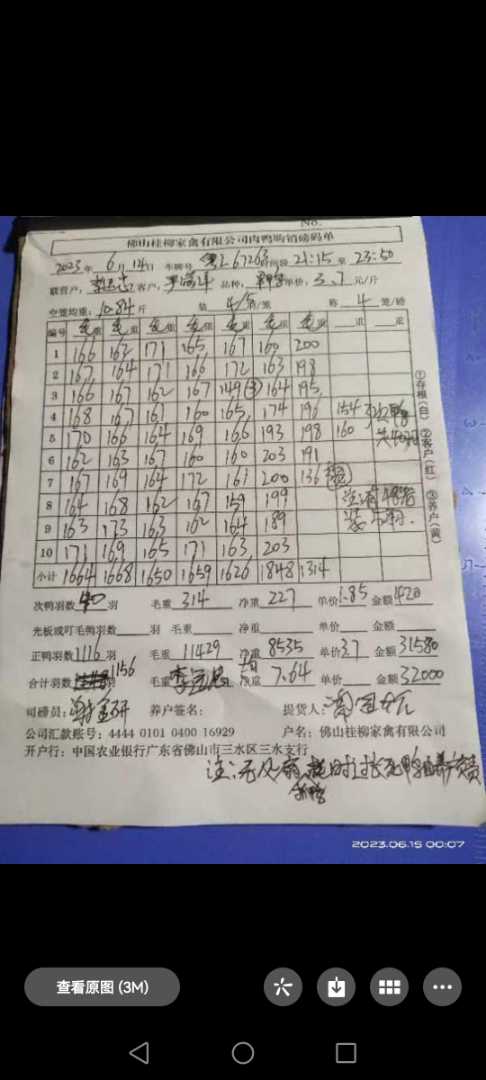 No.
佛山桂柳家禽有限公司肉鸭购销磅码单
2023年 6月14日 车牌号 粤L67263 时间段 21:15 至 23:50
联营户: 客户: 品种: 单价: 3.7 元/斤
空笼均重: 10.84 斤 装 4/5 /笼 称 4 笼/磅
编号 毛重 毛重 毛重 毛重 毛重 毛重 毛重 重 重
1 166 162 171 165 167 160 200
2 167 164 171 166 172 163 198
3 166 167 162 167 149 ③ 164 195
4 168 167 161 160 165 174 196 154
5 170 166 164 169 166 193 198 160
6 162 163 167 160 160 203 191
7 167 169 164 172 161 200 136
8 164 168 162 167 159 199
9 163 173 163 162 164 189
10 171 169 165 171 163 203
小计 1664 1668 1650 1659 1626 1848 1314
①存根(白) ②客户(红) ③养户(黄)
次鸭羽数 40 羽 毛重 314 净重 227 单价 1.85 金额 420
光板或叮毛鸭羽数 羽 毛重 净重 单价 金额
正鸭羽数 1116 羽 毛重 11429 净重 8535 单价 3.7 金额 31580
合计羽数 1156 羽 毛重 净重 7.64 单价 金额 32000
司磅员: 养户签名: 提货人:
公司汇款账号: 4444 0101 0400 16929 户名: 佛山桂柳家禽有限公司
开户行: 中国农业银行广东省佛山市三水区三水支行
2023.06.15 00:07
查看原图 (3M)